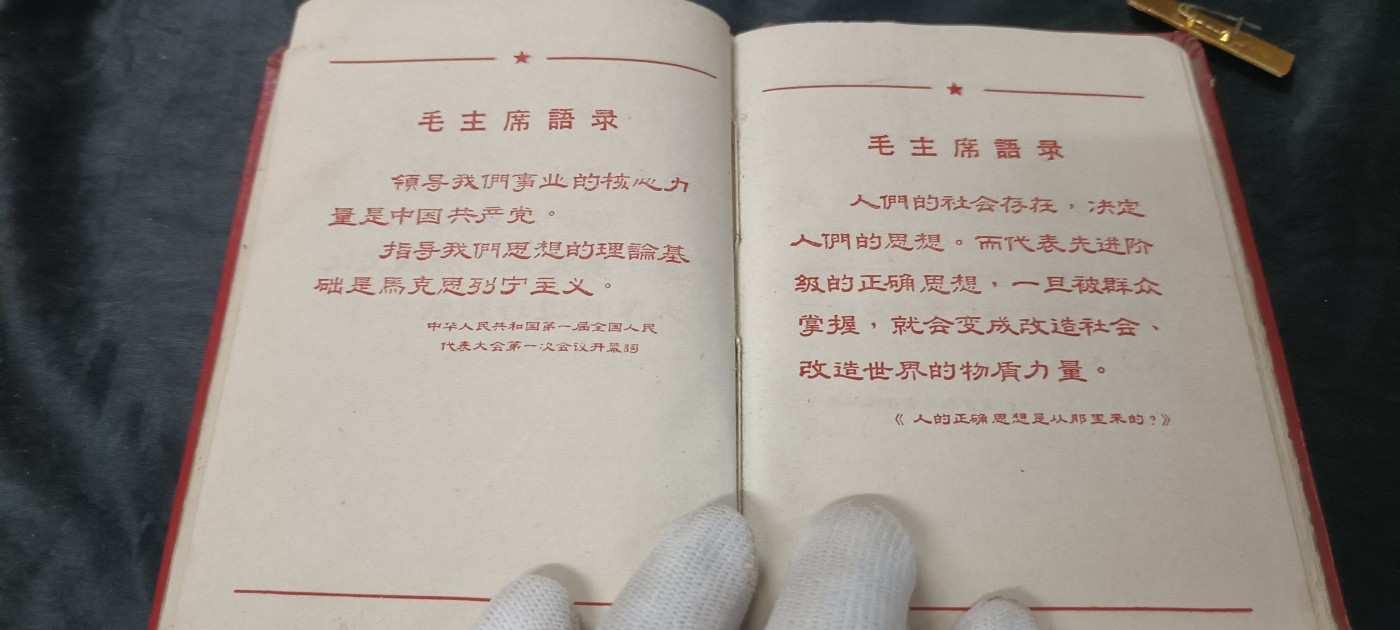 毛主席語录
領导我們事业的核心力
量是中国共产党。
指导我們思想的理論基
础是馬克思列宁主义。
中华人民共和国第一届全国人民
代表大会第一次会议开幕詞
毛主席語录
人們的社会存在，决定
人們的思想。而代表先进阶
級的正确思想，一旦被群众
掌握，就会变成改造社会、
改造世界的物质力量。
《人的正确思想是从那里来的？》